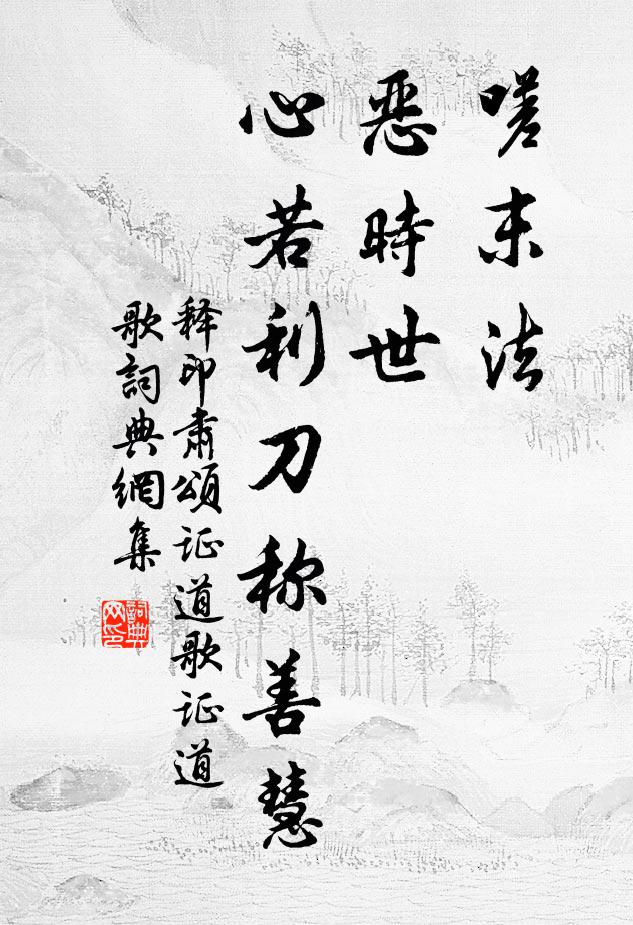 嗟末法
恶時世
心若利刀称善慧
释印肃颂证道歌证道
歌詞典網集
詞典
网印